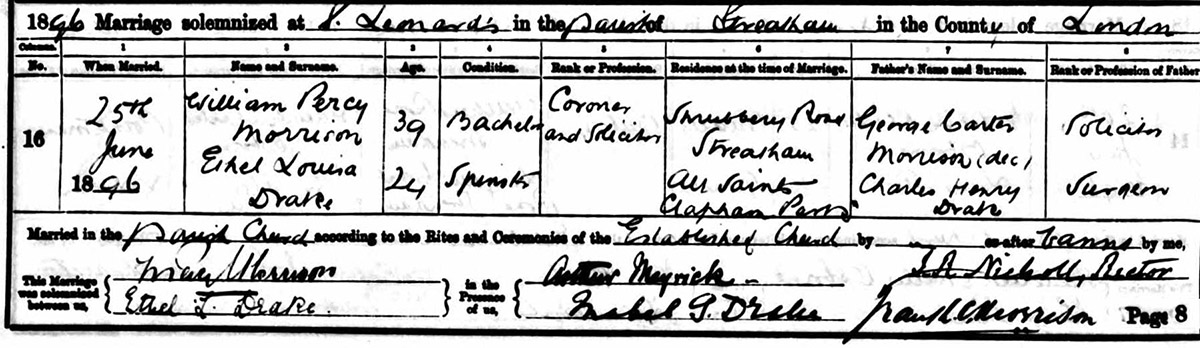 1896 Marriage solemnized at S. Leonard's in the parish of Streatham in the County of London
Columns. 1 2 3 4 5 6 7 8
No. When Married. Name and Surname. Age. Condition. Rank or Profession. Residence at the time of Marriage. Father's Name and Surname. Rank or Profession of Father
16
25th June 1896
William Percy
Morrison
Ethel Louisa
Drake
39
24
Bachelor
Spinster
Coroner
and Solicitor
Shrewsbery Road
Streatham
All Saints
Clapham Park
George Carter
Morrison (dec)
Charles Henry
Drake
Solicitor
Surgeon
Married in the Parish Church according to the Rites and Ceremonies of the Established Church by or after banns by me,
This Marriage was solemnized between us,
Percy Morrison
Ethel L. Drake.
in the Presence of us,
Arthur Meyrick
Mabel G. Drake
J.R. Nicholl, Rector
Frank C. Morrison
Page 8